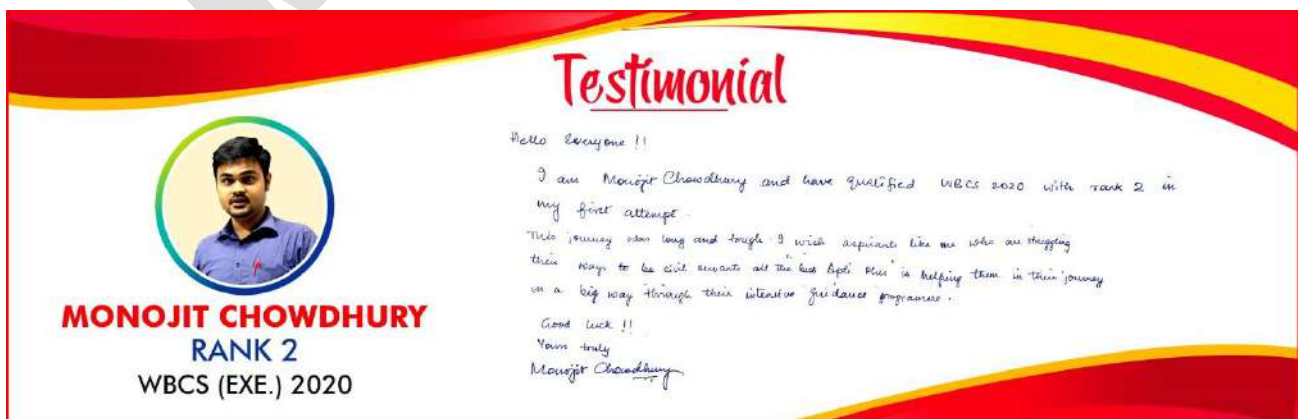 Testimonial
Hello Everyone !!
I am Monojit Chowdhury and have qualified WBCS 2020 with rank 2 in
my first attempt.
This journey was long and tough. I wish aspirants like me who are struggling
their ways to be civil servants all the best. "Apti Plus" is helping them in their journey
in a big way through their intensive guidance programme.
Good luck !!
Yours truly
Monojit Chowdhury
MONOJIT CHOWDHURY
RANK 2
WBCS (EXE.) 2020